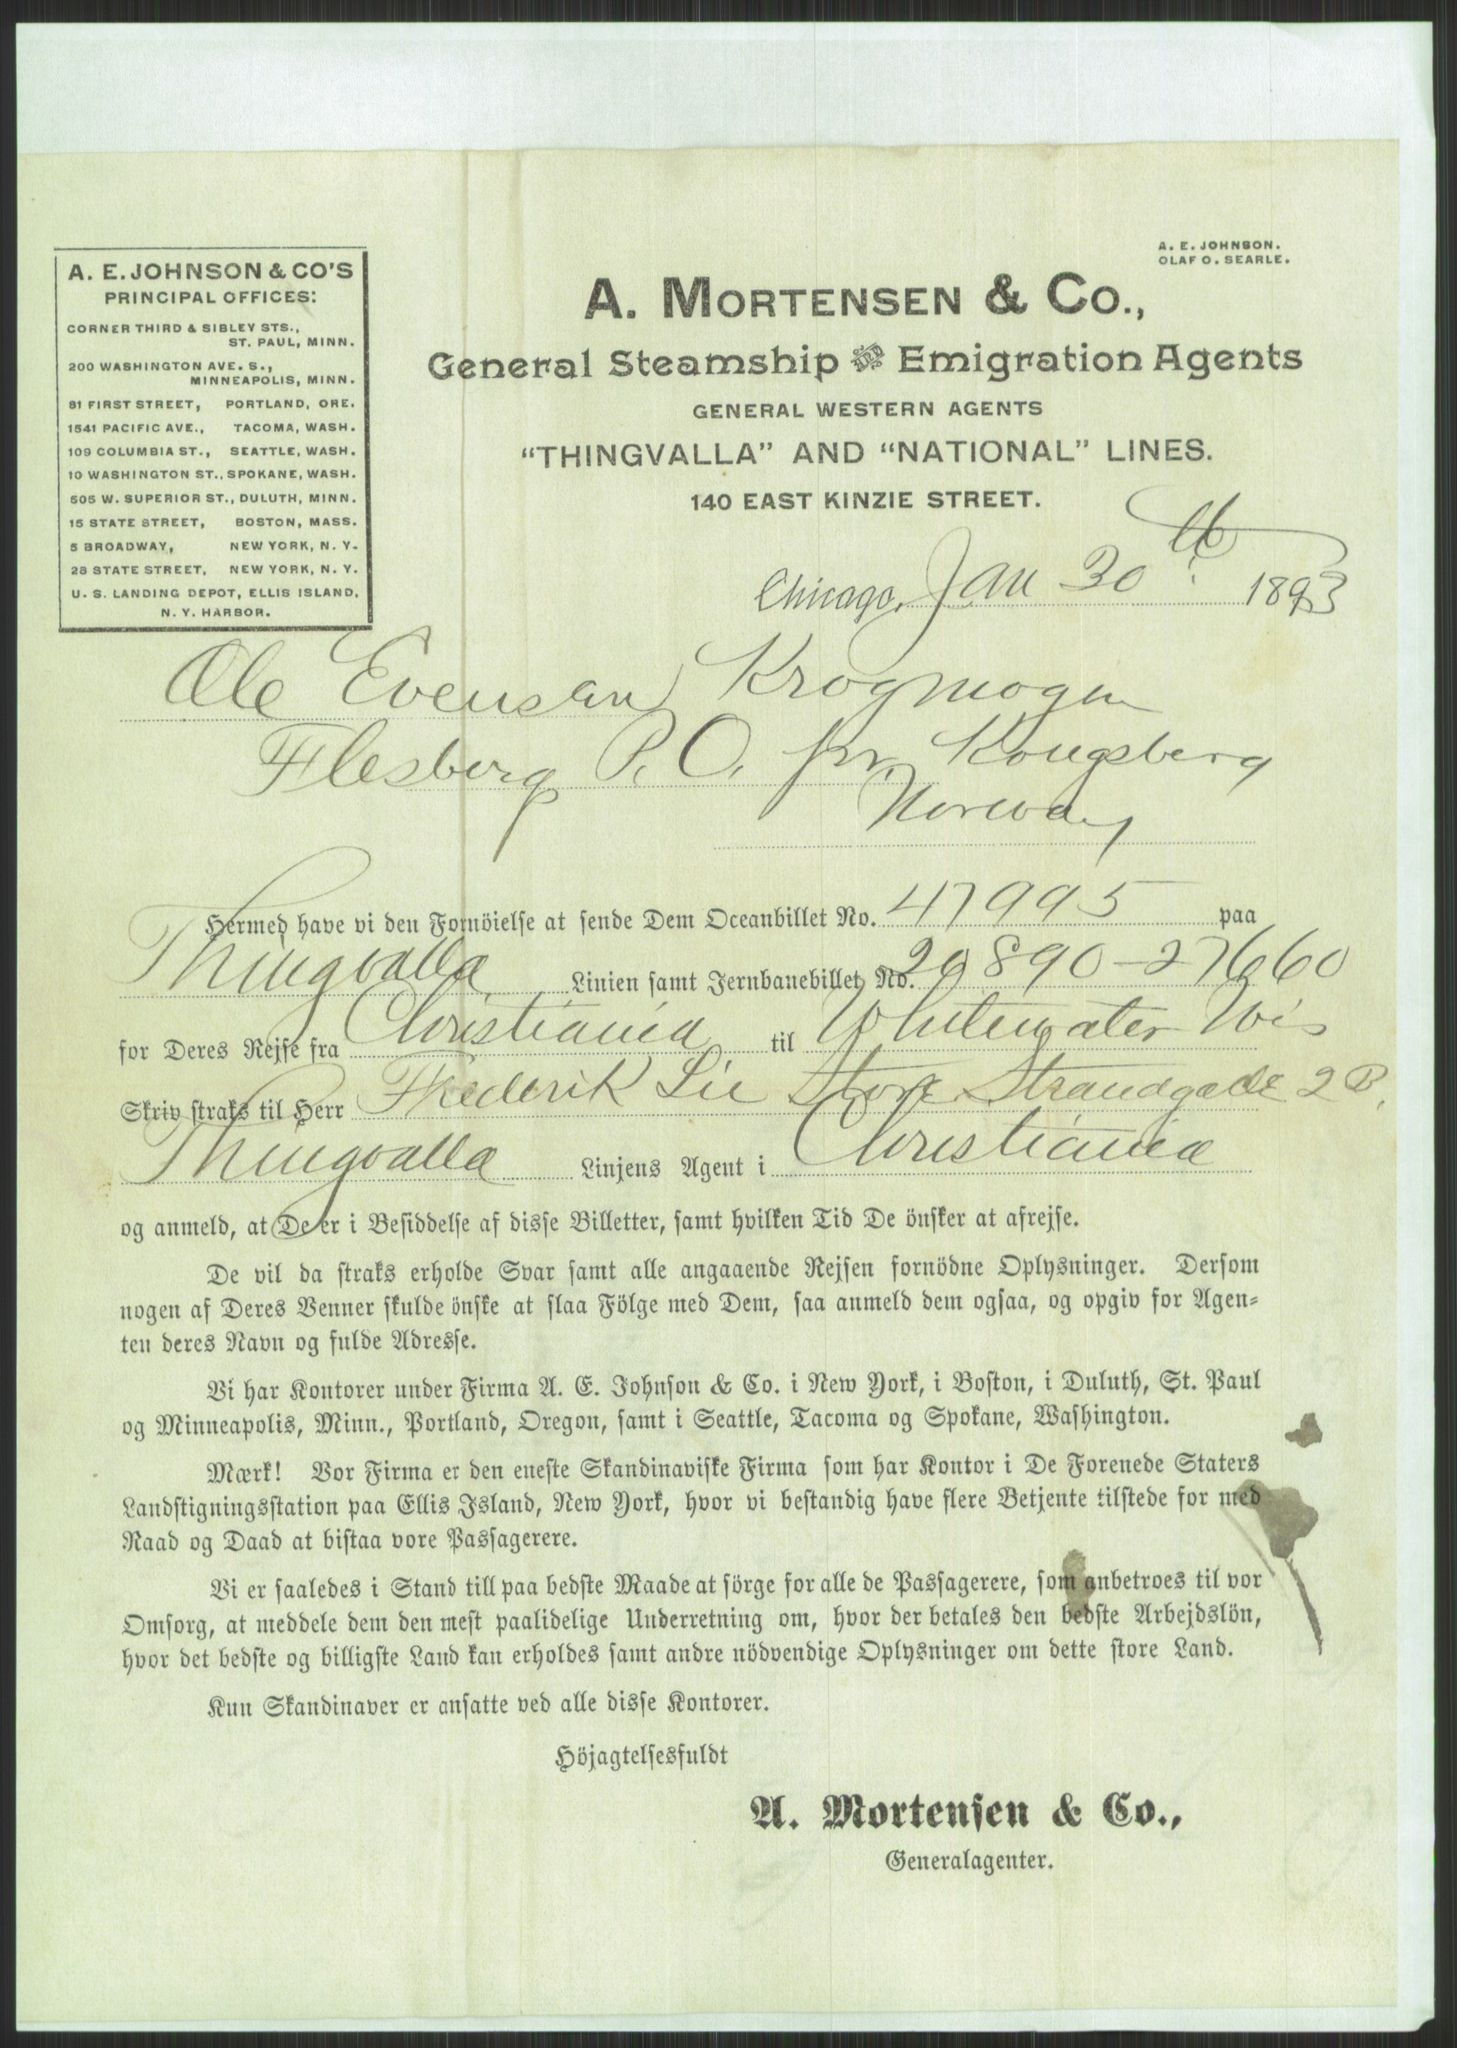 A. E. JOHNSON & CO'S
PRINCIPAL OFFICES:
CORNER THIRD & SIBLEY STS.,
ST. PAUL, MINN.
200 WASHINGTON AVE. S.,
MINNEAPOLIS, MINN.
81 FIRST STREET, PORTLAND, ORE.
1541 PACIFIC AVE., TACOMA, WASH.
109 COLUMBIA ST., SEATTLE, WASH.
10 WASHINGTON ST., SPOKANE, WASH.
505 W. SUPERIOR ST., DULUTH, MINN.
15 STATE STREET, BOSTON, MASS.
5 BROADWAY, NEW YORK, N. Y.
28 STATE STREET, NEW YORK, N. Y.
U. S. LANDING DEPOT, ELLIS ISLAND,
N. Y. HARBOR.
A. E. JOHNSON.
OLAF O. SEARLE.
A. MORTENSEN & CO.,
General Steamship and Emigration Agents
GENERAL WESTERN AGENTS
"THINGVALLA" AND "NATIONAL" LINES.
140 EAST KINZIE STREET.
Chicago, Jan 30th 1893
Ole Evensen Krogmogen
Flesberg P.O. pr Kongsberg
Norway
Hermed have vi den Fornöielse at sende Dem Oceanbillet No. 47995 paa
Thingvalla Linien samt Jernbanebillet No. 20890-27660
for Deres Rejse fra Christiania til Whitewater Wis
Skriv straks til Herr Frederik Lie Store Strandgade 2 B.
Thingvalla Linjens Agent i Christiania
og anmeld, at De er i Besiddelse af disse Billetter, samt hvilken Tid De önsker at afrejse.
De vil da straks erholde Svar samt alle angaaende Rejsen fornödne Oplysninger. Dersom
nogen af Deres Venner skulde önske at slaa Fölge med Dem, saa anmeld dem ogsaa, og opgiv for Agen-
ten deres Navn og fulde Adresse.
Vi har Kontorer under Firma A. E. Johnson & Co. i New York, i Boston, i Duluth, St. Paul
og Minneapolis, Minn., Portland, Oregon, samt i Seattle, Tacoma og Spokane, Washington.
Mærk! Vor Firma er den eneste Skandinaviske Firma som har Kontor i De Forenede Staters
Landstigningsstation paa Ellis Island, New York, hvor vi bestandig have flere Betjente tilstede for med
Raad og Daad at bistaa vore Passagerere.
Vi er saaledes i Stand till paa bedste Maade at sörge for alle de Passagerere, som anbetroes til vor
Omsorg, at meddele dem den mest paalidelige Underretning om, hvor der betales den bedste Arbejdslön,
hvor det bedste og billigste Land kan erholdes samt andre nödvendige Oplysninger om dette store Land.
Kun Skandinaver er ansatte ved alle disse Kontorer.
Höjagtelsesfuldt
A. Mortensen & Co.,
Generalagenter.